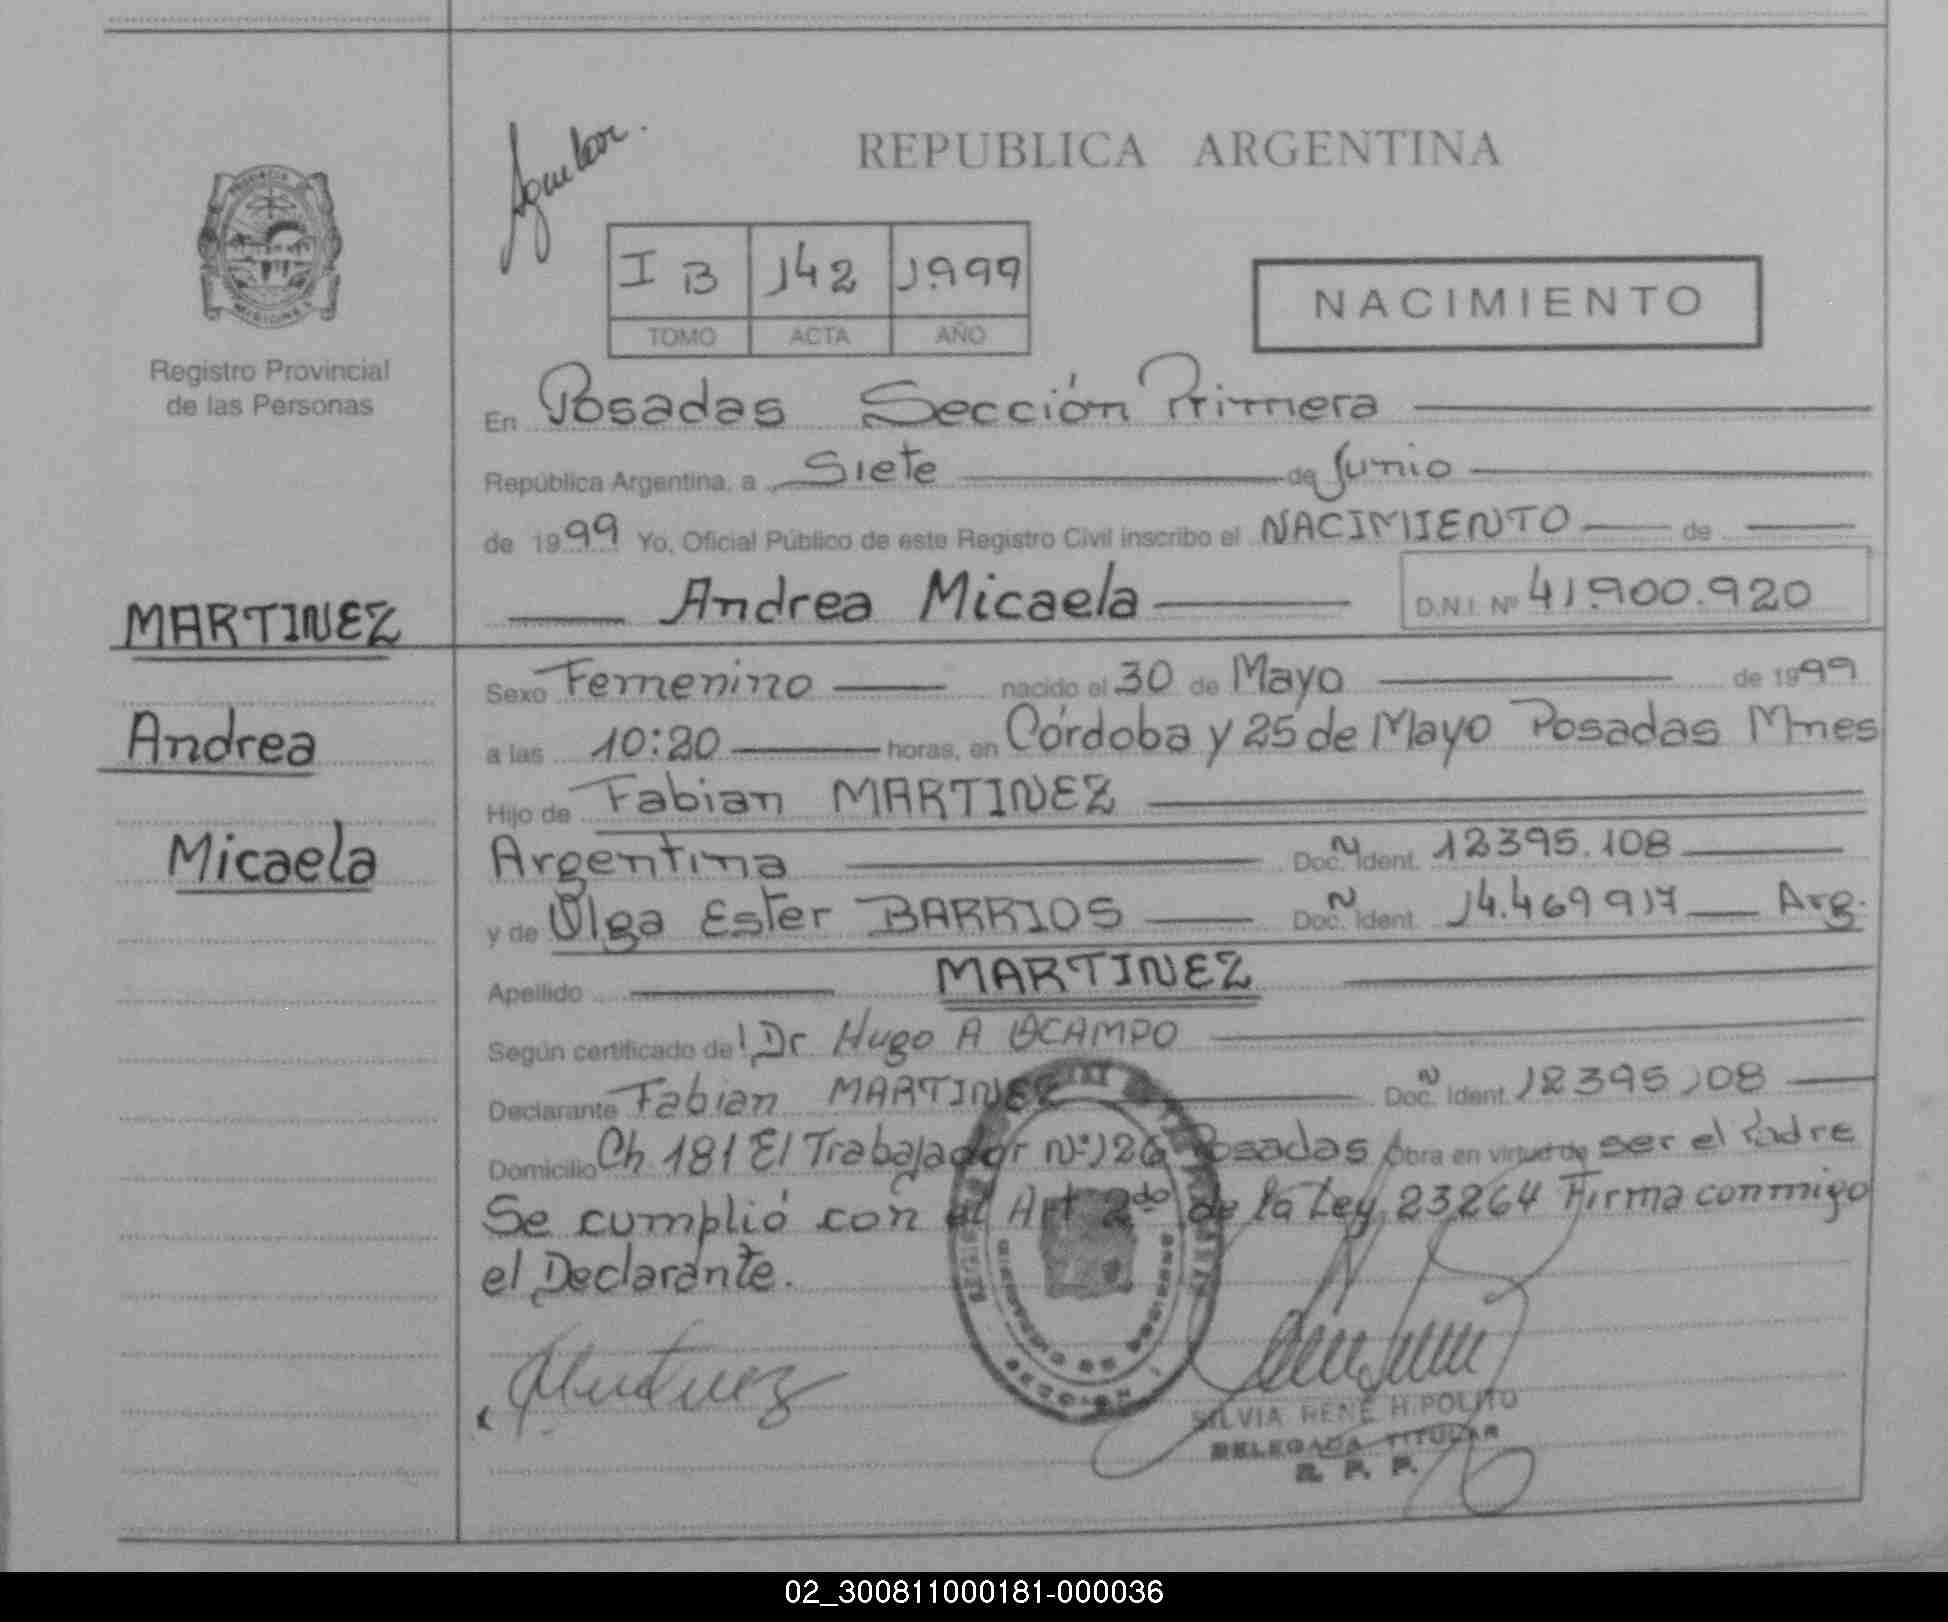 REPUBLICA ARGENTINA
I B 142 1.999
TOMO ACTA AÑO
NACIMIENTO
Registro Provincial
de las Personas
En Posadas Sección Primera
República Argentina, a Siete de Junio
de 1999 Yo, Oficial Público de este Registro Civil inscribo el NACIMIENTO de
Andrea Micaela D.N.I. Nº 41.900.920
MARTINEZ
Andrea
Micaela
Sexo Femenino nacido el 30 de Mayo de 1999
a las 10:20 horas, en Córdoba y 25 de Mayo Posadas Mnes
Hijo de Fabian MARTINEZ
Argentina Doc. Ident. 12395.108
y de Olga Ester BARRIOS Doc. Ident. 14.469917 Arg.
Apellido MARTINEZ
Según certificado de Dr Hugo A OCAMPO
Declarante Fabian MARTINEZ Doc. Ident. 12395108
Domicilio Ch 181 El Trabajador Nº 126 Posadas Obra en virtud de ser el Padre
Se cumplió con el Art 2do de la Ley 23264 Firma conmigo
el Declarante.
SILVIA RENE HIPOLITO
DELEGADA TITULAR
R. P. P.
02_300811000181-000036